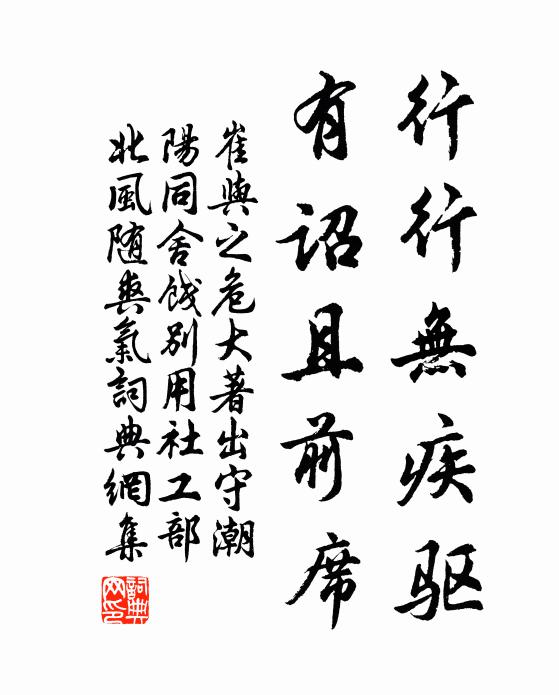 行行無疾驱
有诏且前席
崔與之危大著出守潮
陽同舍餞别用社工部
北風随爽氣詞典網集
詞典
网印